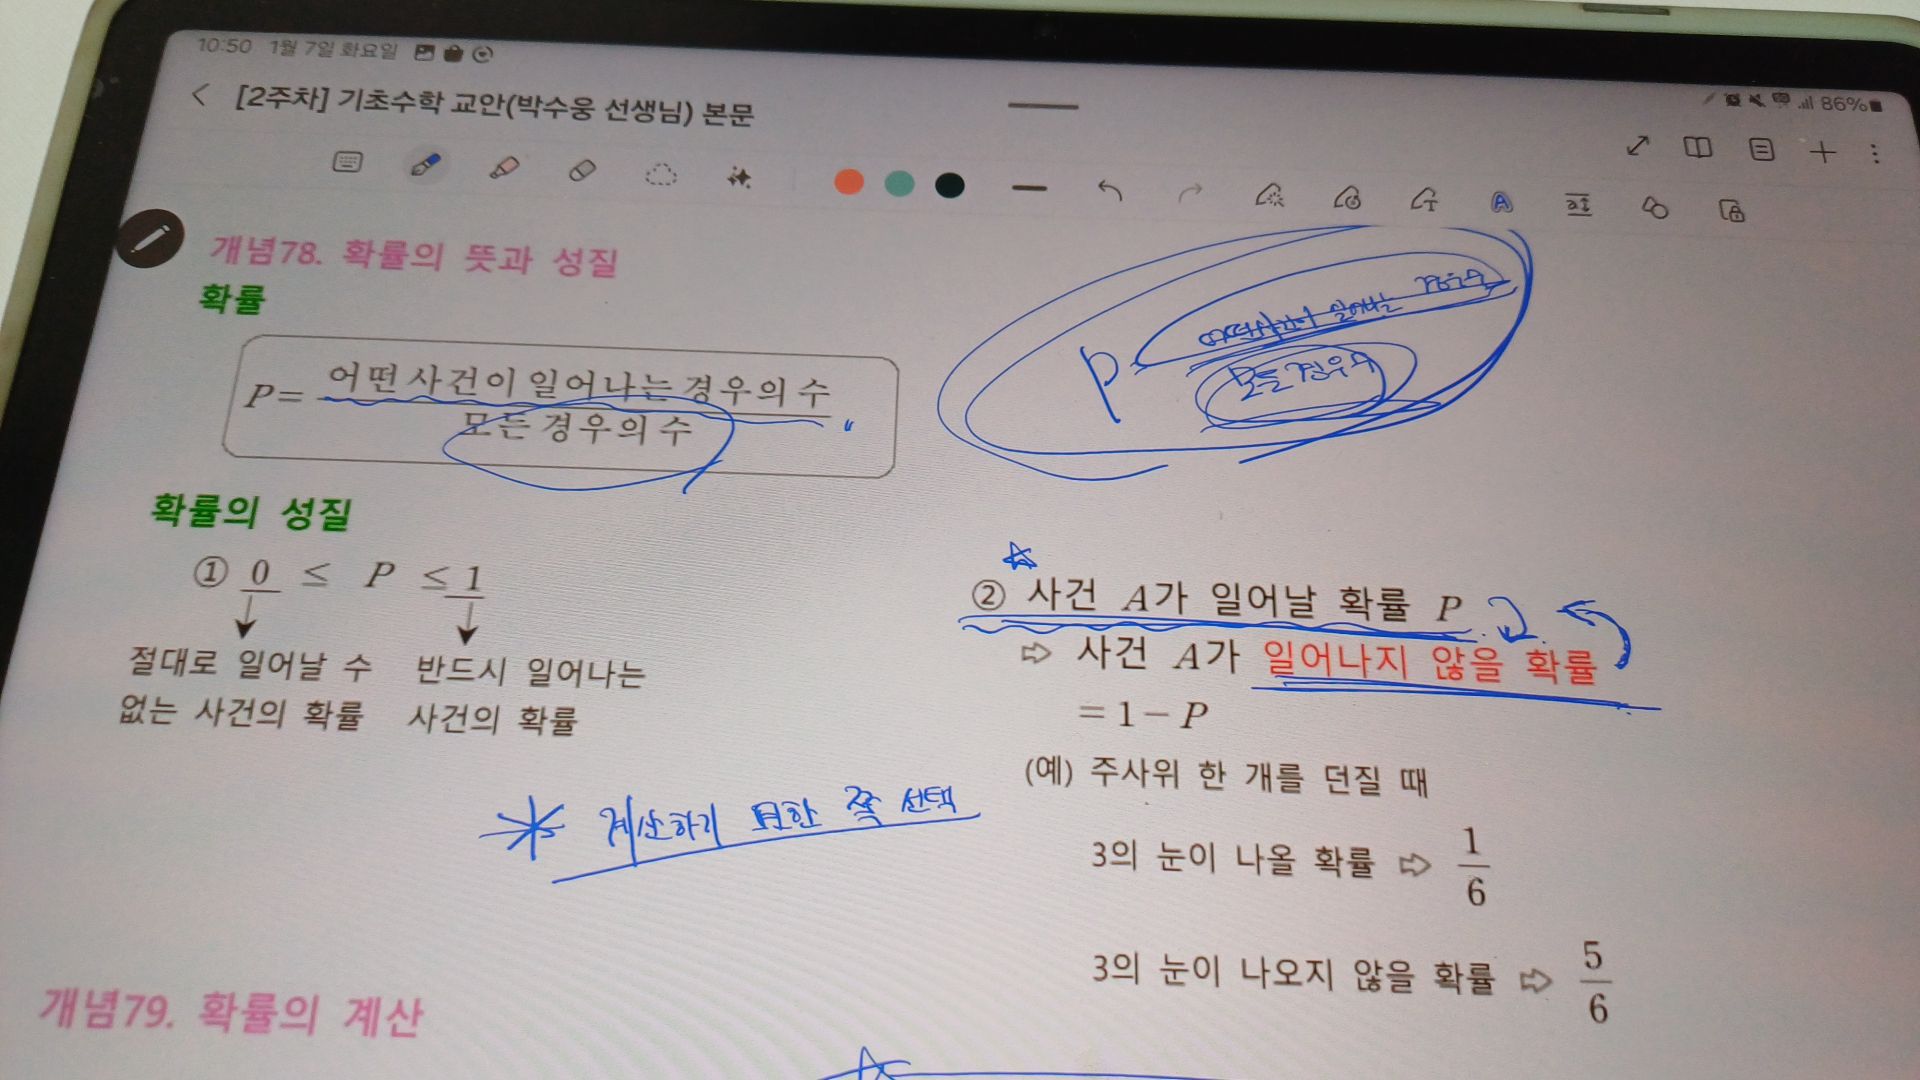 10:50 1월 7일 화요일
86%
[2주차] 기초수학 교안(박수웅 선생님) 본문
개념78. 확률의 뜻과 성질
확률
P= 어떤 사건이 일어나는 경우의 수
모든 경우의 수
P 어떤사건이 일어나는 경우수
모든 경우수
확률의 성질
① 0 ≤ P ≤ 1
절대로 일어날 수 반드시 일어나는
없는 사건의 확률 사건의 확률
② 사건 A가 일어날 확률 P
⇨ 사건 A가 일어나지 않을 확률
= 1 − P
(예) 주사위 한 개를 던질 때
3의 눈이 나올 확률 ⇨ 1/6
3의 눈이 나오지 않을 확률 ⇨ 5/6
계산하기 편한 쪽 선택
개념79. 확률의 계산